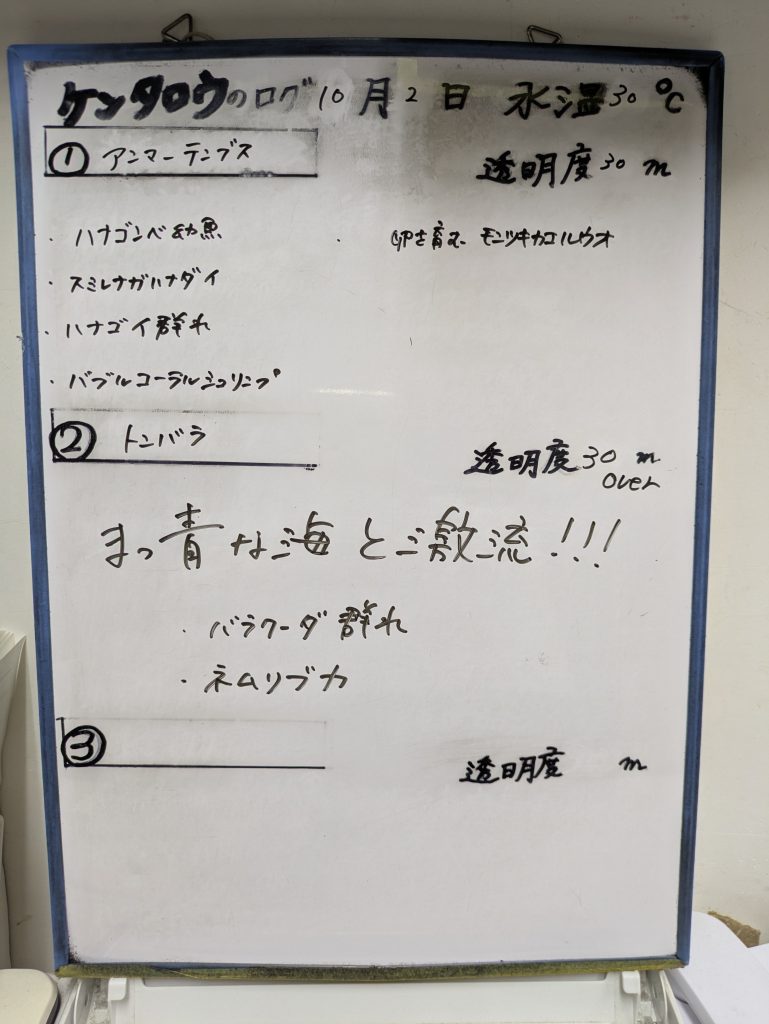 ケンタロウのログ 10月2日 水温30℃
① アンマーテンブス
透明度30m
・ハナゴンベ幼魚
・卵を育む モンツキカエルウオ
・スミレナガハナダイ
・ハナゴイ群れ
・バブルコーラルシュリンプ
② トンバラ
透明度30m
over
まっ青な海とご激流!!!
・バラクーダ群れ
・ネムリブカ
③
透明度 m